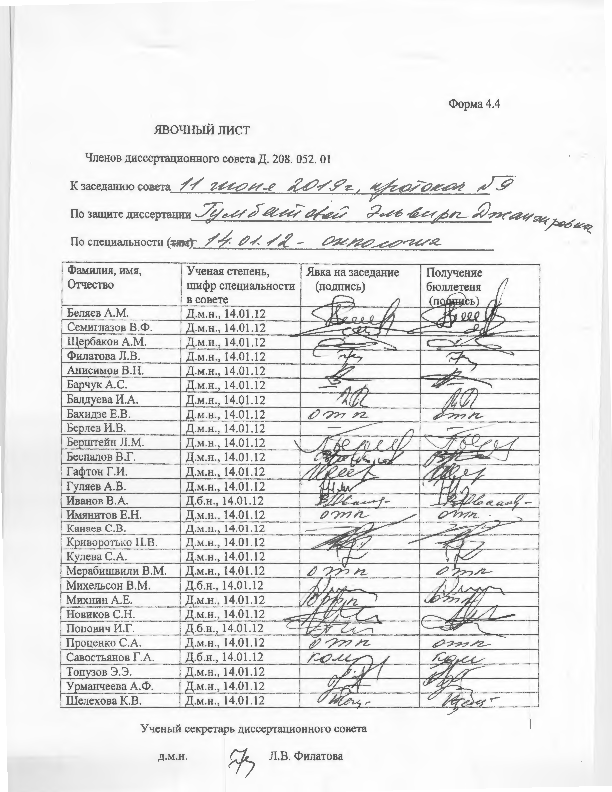 Форма 4.4
ЯВОЧНЫЙ ЛИСТ
Членов диссертационного совета Д. 208. 052. 01
К заседанию совета 11 июня 2019 г., протокол №9
По защите диссертации Эльвиры Джангировны
По специальности 14.01.12 - онкология
Фамилия, имя, Отчество | Ученая степень, шифр специальности в совете | Явка на заседание (подпись) | Получение бюллетеня (подпись)
Беляев А.М. | Д.м.н., 14.01.12
Семиглазов В.Ф. | Д.м.н., 14.01.12
Щербаков А.М. | Д.м.н., 14.01.12
Филатова Л.В. | Д.м.н., 14.01.12
Анисимов В.Н. | Д.м.н., 14.01.12
Барчук А.С. | Д.м.н., 14.01.12 | —
Балдуева И.А. | Д.м.н., 14.01.12
Бахидзе Е.В. | Д.м.н., 14.01.12 | отп | отп
Берлев И.В. | Д.м.н., 14.01.12 | — | —
Берштейн Л.М. | Д.м.н., 14.01.12
Беспалов В.Г. | Д.м.н., 14.01.12
Гафтон Г.И. | Д.м.н., 14.01.12
Гуляев А.В. | Д.м.н., 14.01.12
Иванов В.А. | Д.б.н., 14.01.12
Имянитов Е.Н. | Д.м.н., 14.01.12 | отп | отп
Канаев С.В. | Д.м.н., 14.01.12
Криворотько П.В. | Д.м.н., 14.01.12
Кулева С.А. | Д.м.н., 14.01.12
Мерабишвили В.М. | Д.м.н., 14.01.12 | отп | отп
Михельсон В.М. | Д.б.н., 14.01.12
Михнин А.Е. | Д.м.н., 14.01.12
Новиков С.Н. | Д.м.н., 14.01.12
Попович И.Г. | Д.б.н., 14.01.12
Проценко С.А. | Д.м.н., 14.01.12 | отп | отп
Савостьянов Г.А. | Д.б.н., 14.01.12
Топузов Э.Э. | Д.м.н., 14.01.12
Урманчеева А.Ф. | Д.м.н., 14.01.12
Шелехова К.В. | Д.м.н., 14.01.12
Ученый секретарь диссертационного совета
д.м.н. Л.В. Филатова